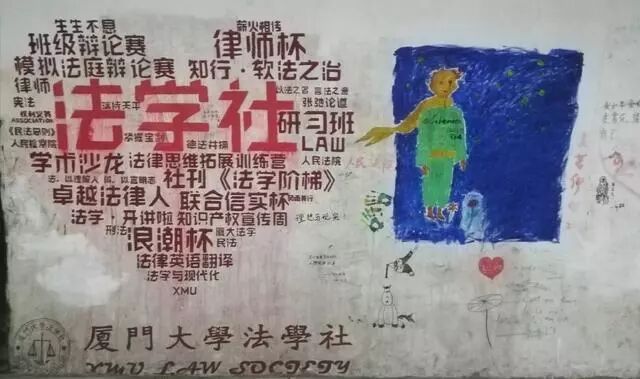 生生不息
薪火相传
班级辩论赛
律师杯
模拟法庭辩论赛
知行·软法之治
律师
宪法
以法之名 言法之意
张弛论道
权利义务
ASSOCIATION
法学社
研习班
LAW
《民法总则》
人民检察院
掌握宝剑
德法兼修
人民法院
学术沙龙
法律思维拓展训练营
社刊《法学阶梯》
卓越法律人
联合信实杯
法学·开讲啦
知识产权宣传周
理想与现实
刑法
浪潮杯
厦大法学
民法
法律英语翻译
法学与现代化
XMU
厦門大學法學社
XMU LAW SOCIETY